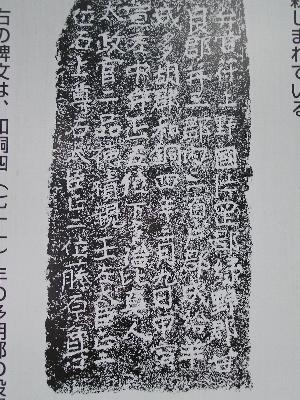 親しまれている
弁官符上野國片岡郡緑野郡甘
良郡并三郡内三百戸郡成給羊
成多胡郡和銅四年三月九日甲寅
宣左中弁正五位下多治比真人
太政官二品穂積親王左太臣正二
位石上尊右太臣正二位藤原尊
右の碑文は、和銅四（七一一）年の多胡郡の設